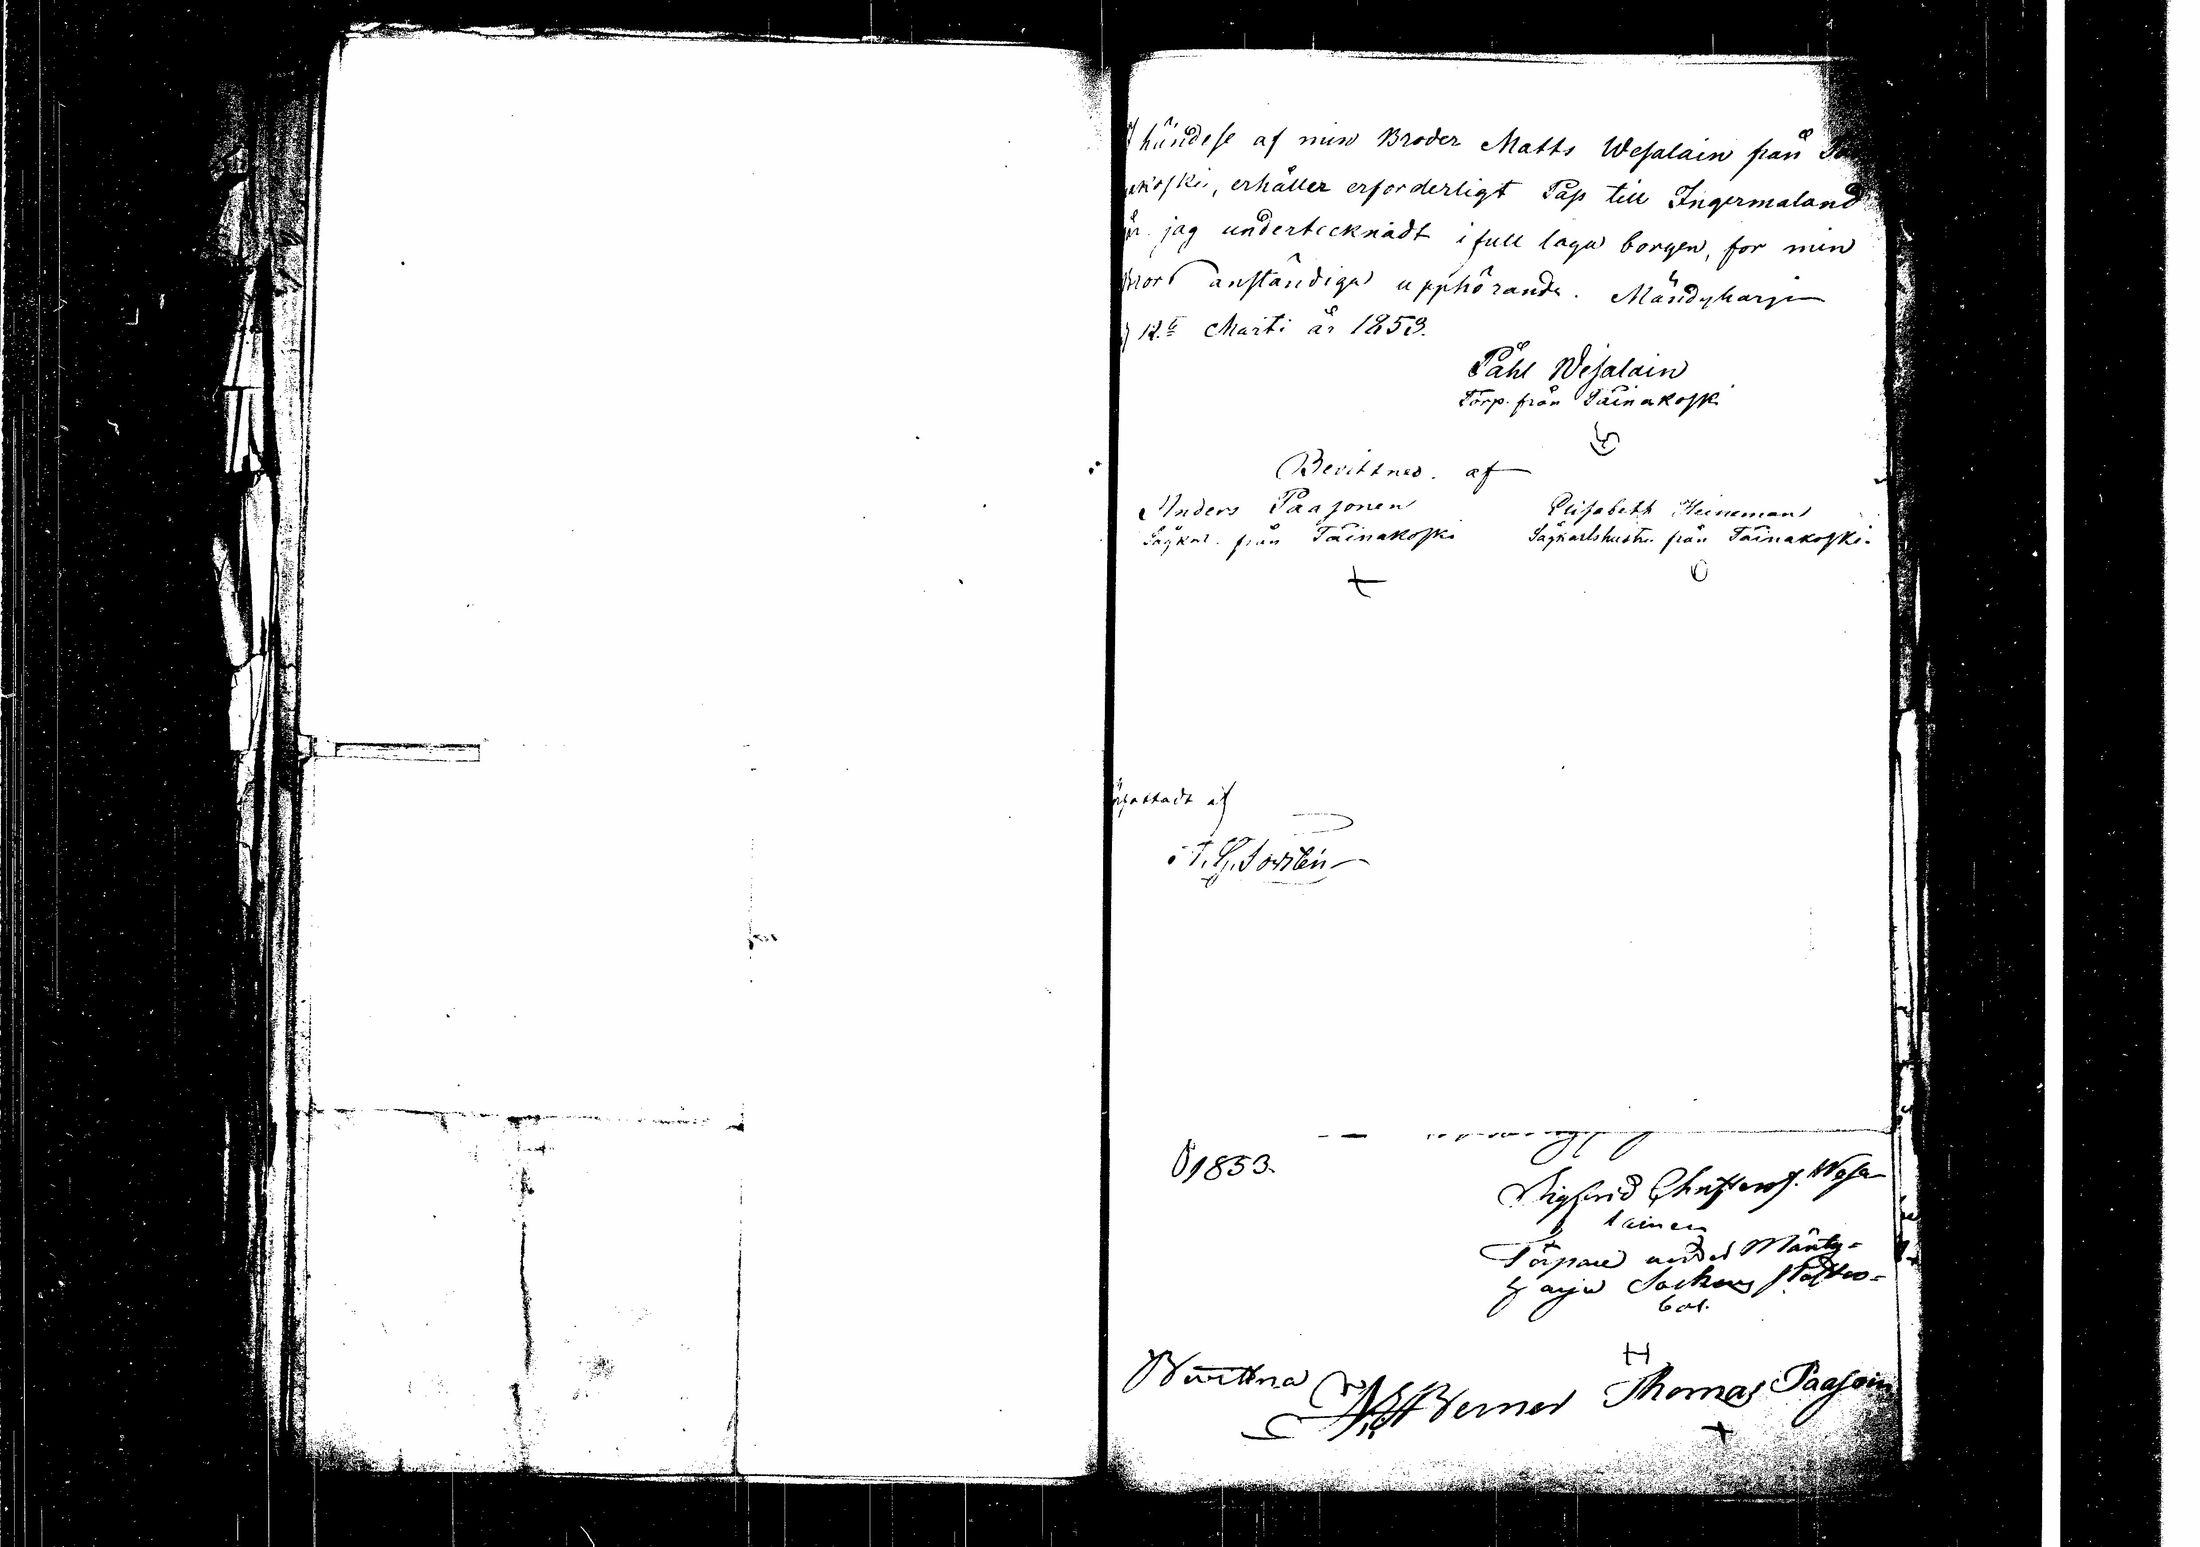 händese af min Broder Matts Wesalain från
koski, erhåller erforderligt Pass till Ingermaland
jag undertecknadt i full laga borgen, for min
Brors anständiga upphörande. Mändyharju
d 12.te Marti år 1853.
Påhl Wesalain
Torp. från Täinakoski
Bevittnas. af
Anders Paasonen Elisabeth Heineman
Sågkarl. från Täinakoski Sågkarlshustru från Täinakoski.
+ O
författadt af
1853.
Sigfrid Christerss. Wesa
lainen
Torpare under Mänty=
harju Sockens
bol.
H
Bevittna Werner Thomas Paasoin
+